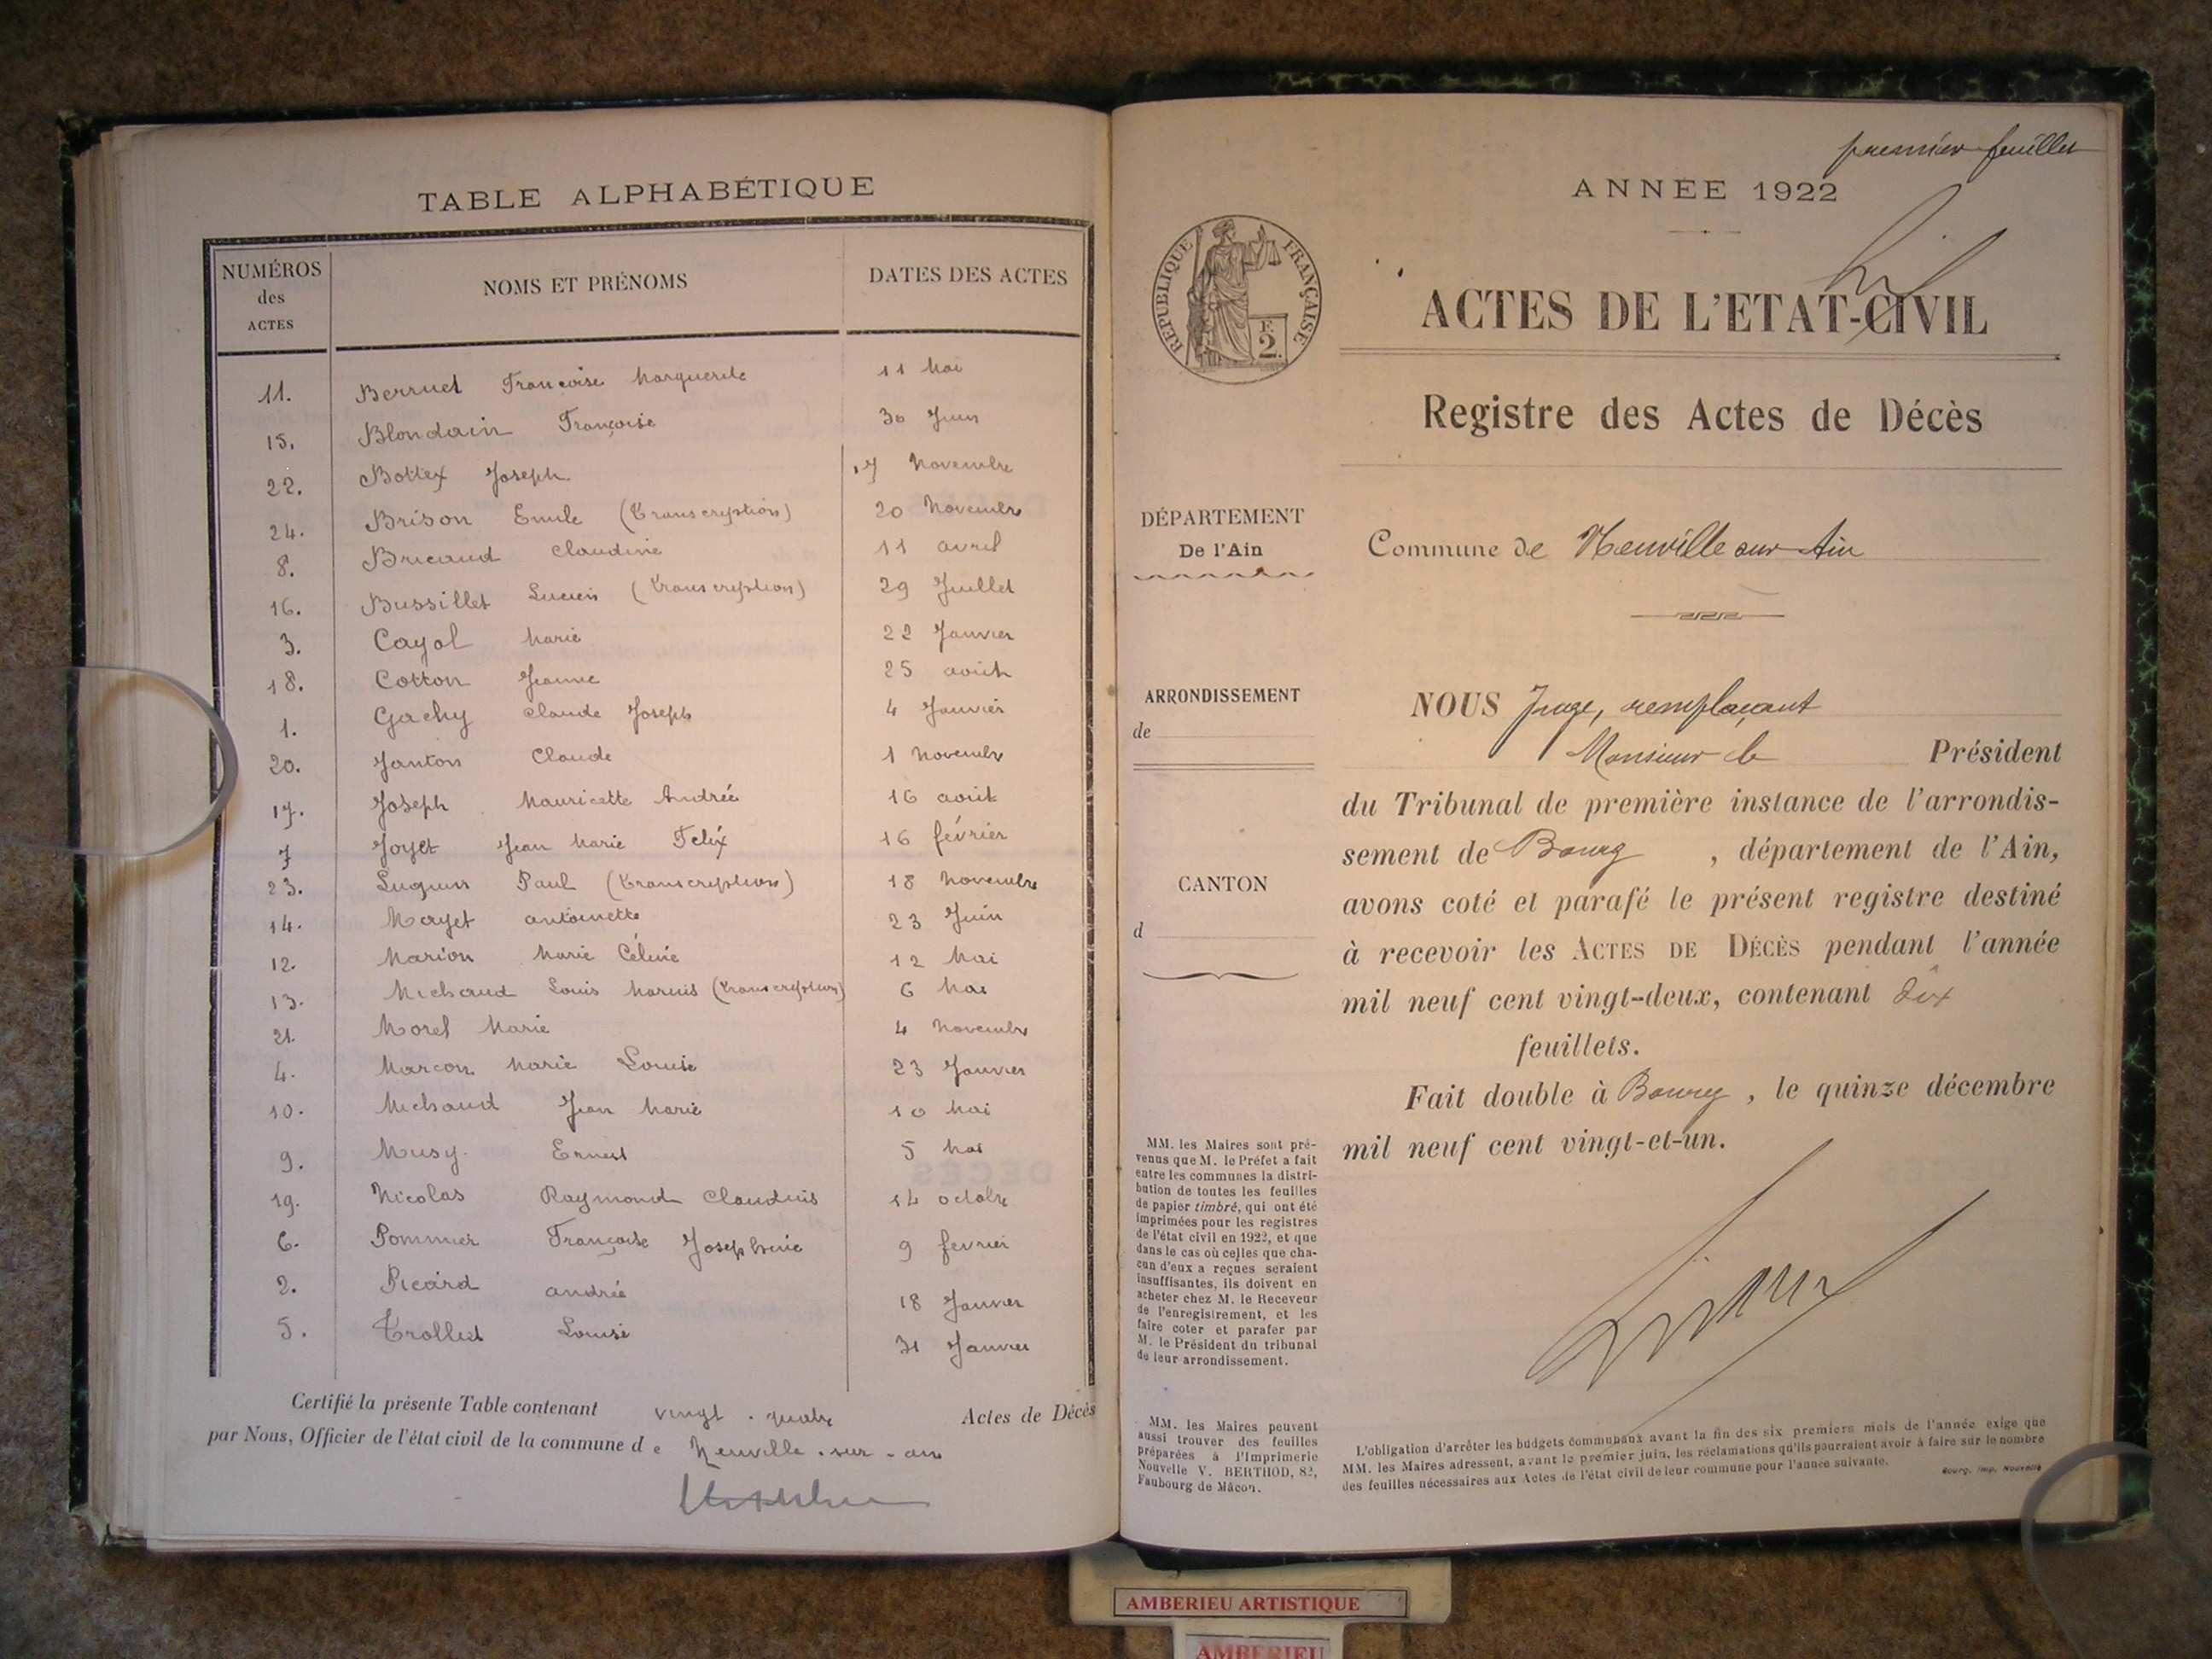 TABLE ALPHABÉTIQUE
NUMÉROS des ACTES NOMS ET PRÉNOMS DATES DES ACTES
11. Berruet Françoise Marguerite 11 Mai
15. Blondain Françoise 30 Juin
22. Bottex Joseph 17 Novembre
24. Brison Emile (Transcription) 20 Novembre
8. Bricaud Claudine 11 avril
16. Bussillet Lucien (Transcription) 29 Juillet
3. Cayol Marie 22 Janvier
18. Cotton Jeanne 25 août
1. Gachy Claude Joseph 4 Janvier
20. Janton Claude 1 Novembre
17. Joseph Mauricette Andrée 16 août
7 Joyet Jean Marie Felix 16 février
23. Luguin Paul (Transcription) 18 Novembre
14. Mayet antoinette 23 Juin
12. Marion Marie Céline 12 Mai
13. Michaud Louis Marius (Transcription) 6 Mai
21. Morel Marie 4 Novembre
4. Marcon Marie Louise 23 Janvier
10. Michaud Jean Marie 10 Mai
9. Musy Ernest 5 Mai
19. Nicolas Raymond Claudius 14 octobre
6. Pommier Françoise Josephine 9 fevrier
2. Picard andrée 18 Janvier
5. Trollet Louise 31 Janvier
Certifié la présente Table contenant vingt-quatre Actes de Décès
par Nous, Officier de l'état civil de la commune de Neuville-sur-ain
premier feuillet
ANNÉE 1922
RÉPUBLIQUE FRANÇAISE
F.
2.
ACTES DE L'ETAT-CIVIL
Registre des Actes de Décès
DÉPARTEMENT
De l'Ain
Commune de Neuville sur Ain
ARRONDISSEMENT
de
CANTON
d
NOUS Juge, remplaçant
Monsieur le Président
du Tribunal de première instance de l'arrondis-
sement de Bourg , département de l'Ain,
avons coté et parafé le présent registre destiné
à recevoir les ACTES DE DÉCÈS pendant l'année
mil neuf cent vingt-deux, contenant dix
feuillets.
Fait double à Bourg , le quinze décembre
mil neuf cent vingt-et-un.
MM. les Maires sont pré-
venus que M. le Préfet a fait
entre les communes la distri-
bution de toutes les feuilles
de papier timbré, qui ont été
imprimées pour les registres
de l'état civil en 1922, et que
dans le cas où celles que cha-
cun d'eux a reçues seraient
insuffisantes, ils doivent en
acheter chez M. le Receveur
de l'enregistrement, et les
faire coter et parafer par
M. le Président du tribunal
de leur arrondissement.
MM. les Maires peuvent
aussi trouver des feuilles
préparées à l'Imprimerie
Nouvelle V. BERTHOD, 82,
Faubourg de Mâcon.
L'obligation d'arrêter les budgets communaux avant la fin des six premiers mois de l'année exige que
MM. les Maires adressent, avant le premier juin, les réclamations qu'ils pourraient avoir à faire sur le nombre
des feuilles nécessaires aux Actes de l'état civil de leur commune pour l'année suivante.
Bourg, Imp. Nouvelle
AMBERIEU ARTISTIQUE
AMBERIEU